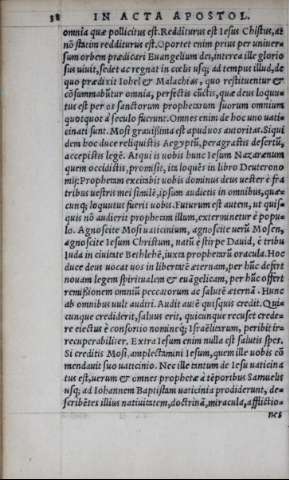 38 IN ACTA APOSTOL.
omnia quæ pollicitus est. Redditurus est Iesus Chistus, at
nõ statim redditurus est. Oportet enim prius per uniuer-
sum orbem prædicari Euangelium dei, interea ille glorio
sus uiuit, sedet ac regnat in cœlis usq; ad tempus illud, de
quo prædixit Iohel & Malachias, quo restituentur &
cõsummabũtur omnia, perfectis cũctis, quæ deus loquu-
tus est per os sanctorum prophetarum suorum omnium
quotquot à seculo fuerunt. Omnes enim de hoc uno uati-
cinati sunt. Mosi grauissima est apud uos autoritas. Siqui
dem hoc duce reliquistis Aegyptũ, peragrastis desertũ,
accepistis legẽ. Atqui is uobis hunc Iesum Nazarænum
quem occidistis, promisit, ita loquẽs in libro Deuterono
mij: Prophetam excitabit uobis dominus deus uester è fra
tribus uestris mei similẽ, ipsum audietis in omnibus, quæ-
cunq; loquutus fuerit uobis. Futurum est autem, ut quis-
quis nõ audierit prophetam illum, exterminetur è popu-
lo. Agnoscite Mosi uaticinium, agnoscite uerũ Mosen,
agnoscite Iesum Christum, natũ è stirpe Dauid, è tribu
Iuda in ciuitate Bethlehẽ, iuxta prophetarũ oracula. Hoc
duce deus uocat uos in libertatẽ æternam, per hũc defert
nouam legem spiritualem & euãgelicam, per hũc offert
remissionem omniũ peccatorum ac salutẽ æternã. Hunc
ab omnibus uult audiri. Audit autẽ quisquis credit. Qui
cunque crediderit, saluus erit, quicunque recuset crede-
re eiectus è consortio nomineq; Israëlitarum, peribit ir-
recuperabiliter. Extra Iesum enim nulla est salutis spes.
Si creditis Mosi, amplectamini Iesum, quem ille uobis cõ
mendauit suo uaticinio. Nec ille tantum de Iesu uaticina
tus est, uerum & omnes prophetæ à tẽporibus Samuelis
usq; ad Iohannem Baptistam uaticinia prodiderunt, de-
scribẽtes illius natiuitatem, doctrinã, miracula, afflictio-
nes